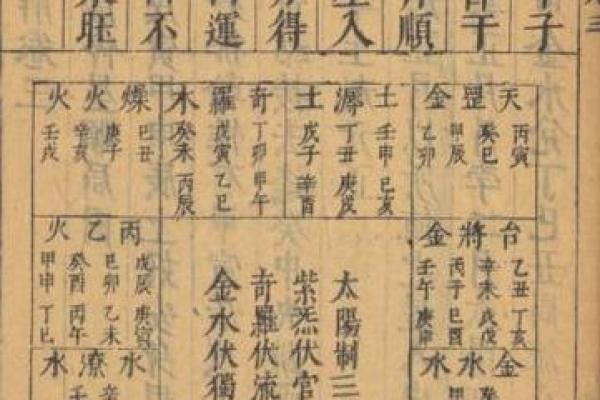 三
子
干
順
入
得
運
不
旺
天罡金
丙寅
癸巳
甲辰
乙卯
土溽土
壬申己亥
丁丑庚戌
戊子辛酉
奇羅木
丁卯甲午
戊寅乙巳
癸未丙辰
燥火火
己丑
庚子
辛亥
壬戌
台將金
乙丑丁亥
辛未戊戌
丙子己酉
壬午庚申
太陽制三
紫炁伏官
奇羅伏流
金水伏獨
丙乙火
戊辰庚寅
己卯乙未
癸酉丙午
甲申丁巳
金水水
癸
甲
水潦水
辛
壬